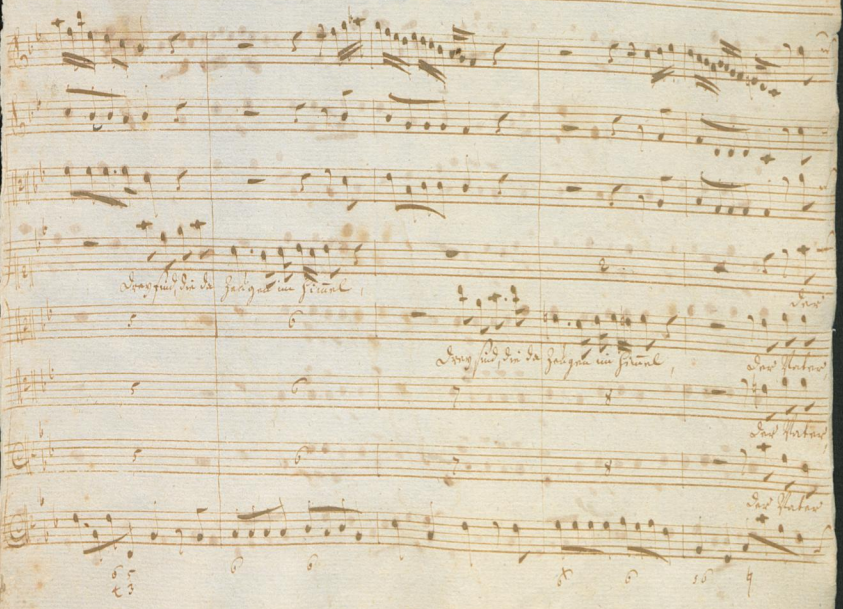 Drey sind, die da zeugen im Him̅el,
der
5 6
Drey sind, die da zeugen im Him̅el,
der Vater
5 6 7 8
der Vater,
5 6 7 8
der Vater
6 5 6 6 6 6
4 3